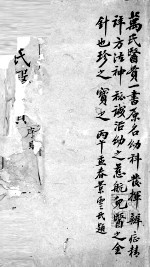 萬氏醫貫一書原名幼科發揮辨症精
祥方法神秘誠治幼之慈航兒醫之金
針也珍之寶之 丙午孟春葉雲氏題
氏醫